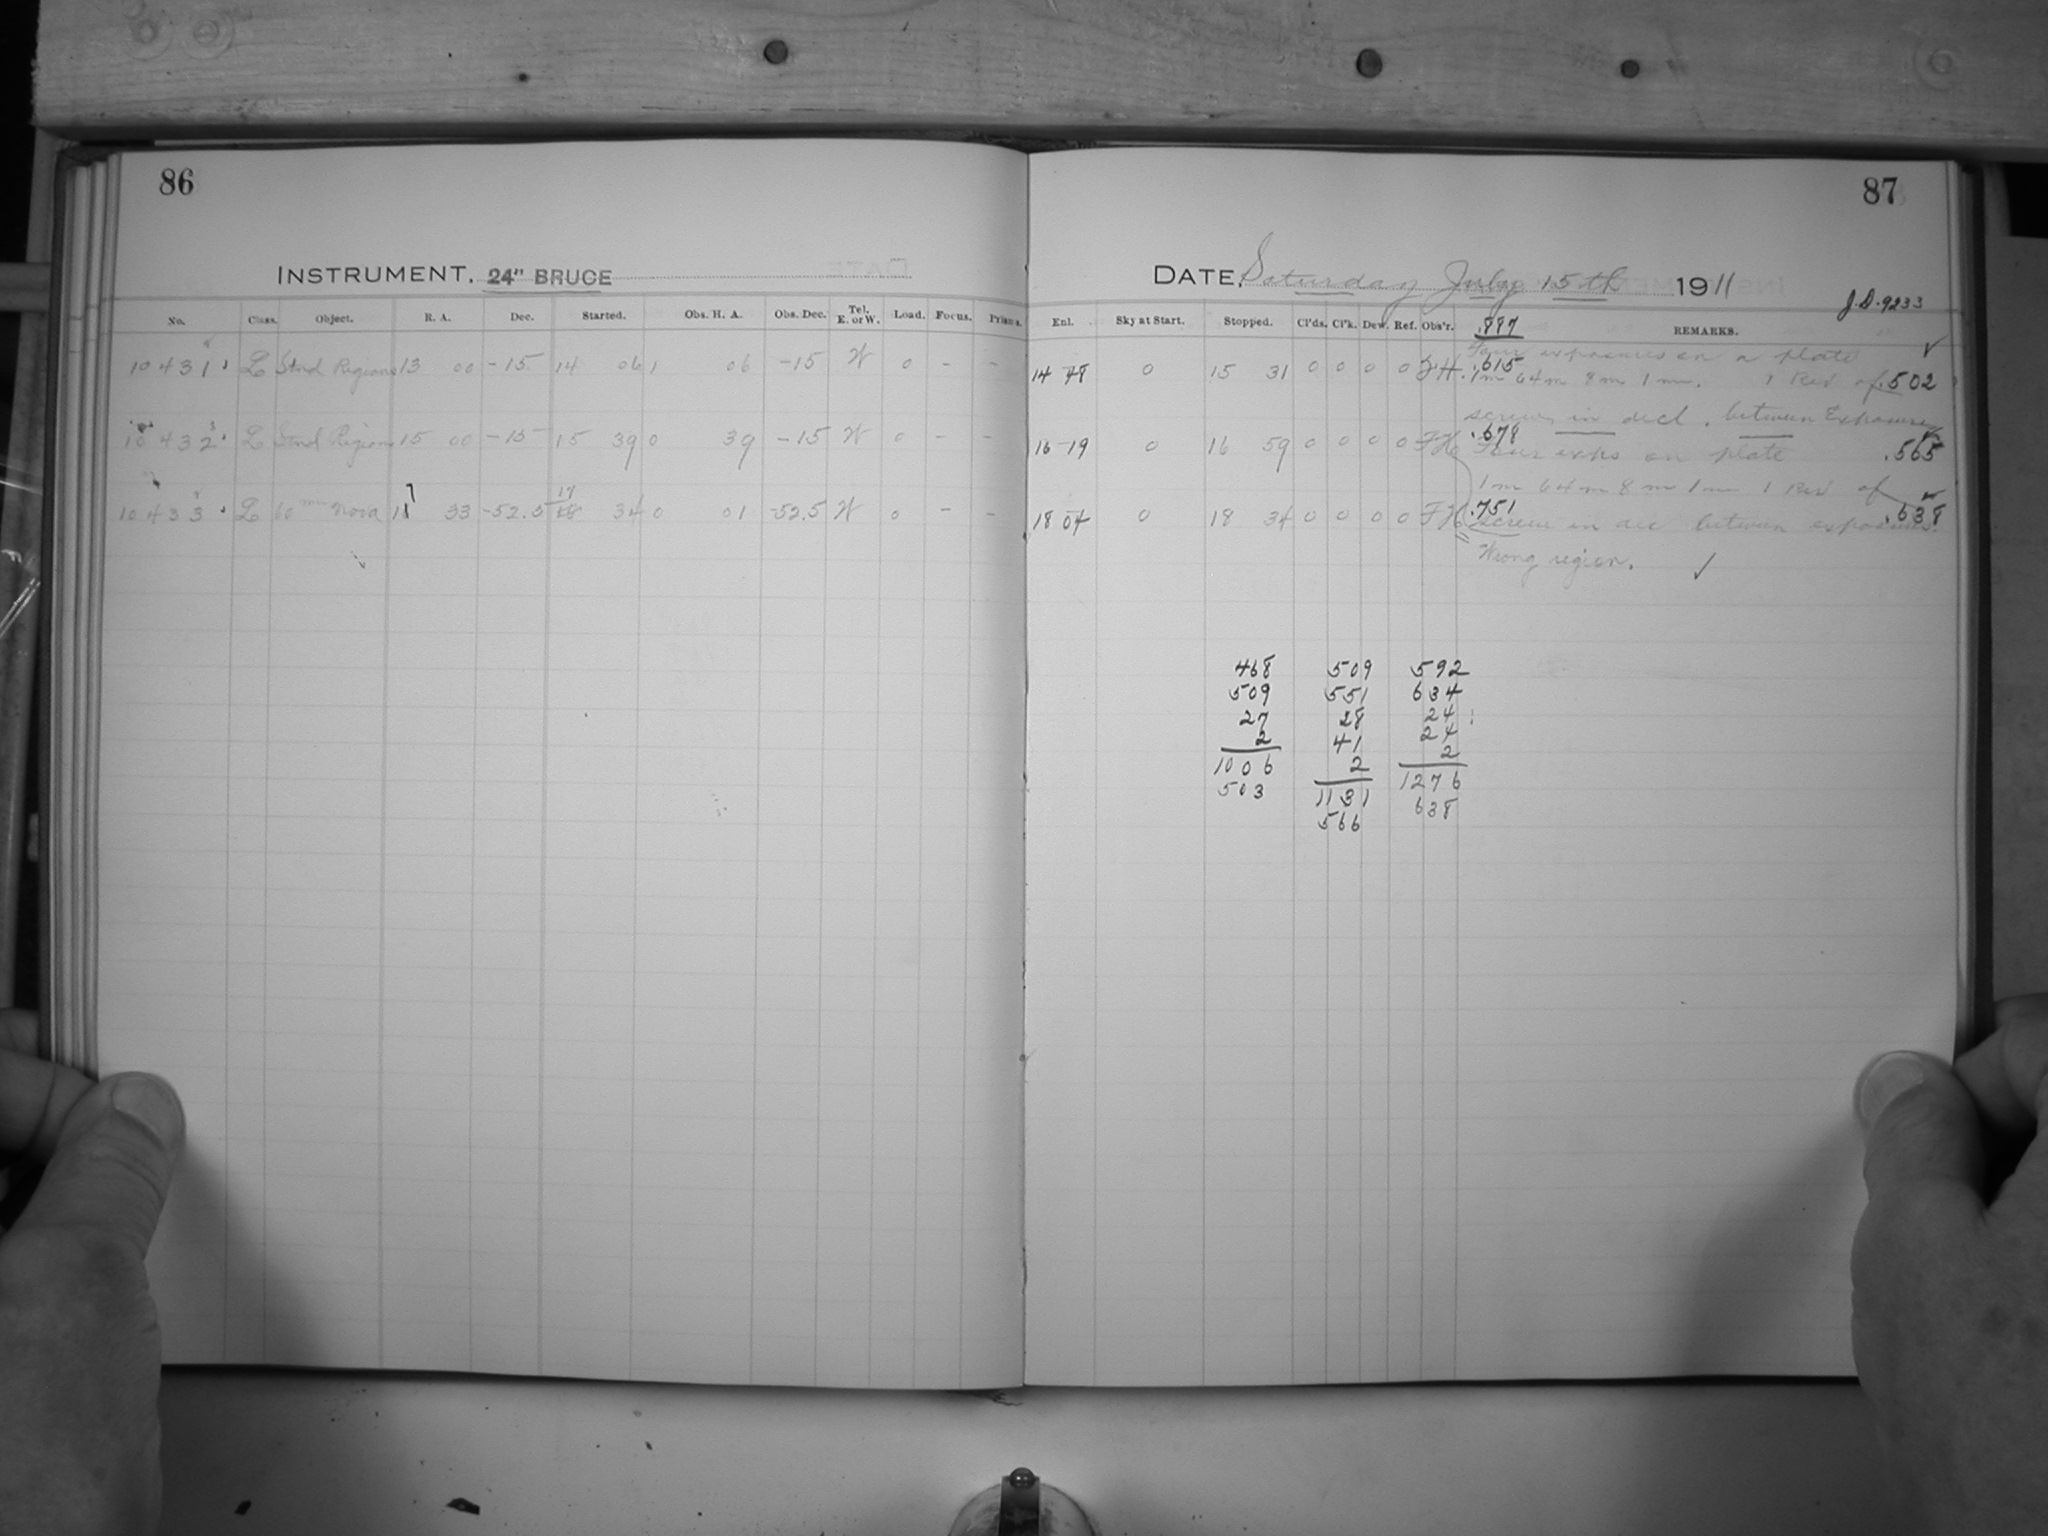 86
INSTRUMENT, 24" BRUCE
No. Class. Object. R. A. Dec. Started. Obs. H. A. Obs. Dec. Tel. E. or W. Load. Focus. Prisms.
10431 L Stnd Regions 13 00 -15 14 06 1 06 -15 W 0 - -
10432 L Stnd Regions 15 00 -15 15 39 0 39 -15 W 0 - -
17
10433 L 60 mm Nova 33 -52.5 18 34 0 01 -52.5 W 0 - -
87
DATE, Saturday July 15th 1911
J.D. 9233
Enl. Sky at Start. Stopped. Cl'ds. Cl'k. Dew. Ref. Obs'r. .887 REMARKS.
Four exposures on a plate
14 48 0 15 31 0 0 0 0 FH .615 1m 64m 8m 1m. 1 Rev of .502
screw in decl. between Exposures
16-19 0 16 59 0 0 0 0 FH .678 Four exps on plate .565
1m 64m 8m 1m 1 Rev of
18 04 0 18 34 0 0 0 0 FH .751 screw in dec between exposures .638
Wrong region. ✓
468 509 592
509 551 634
27 28 24
2 41 24
1006 2 2
503 1131 1276
566 638